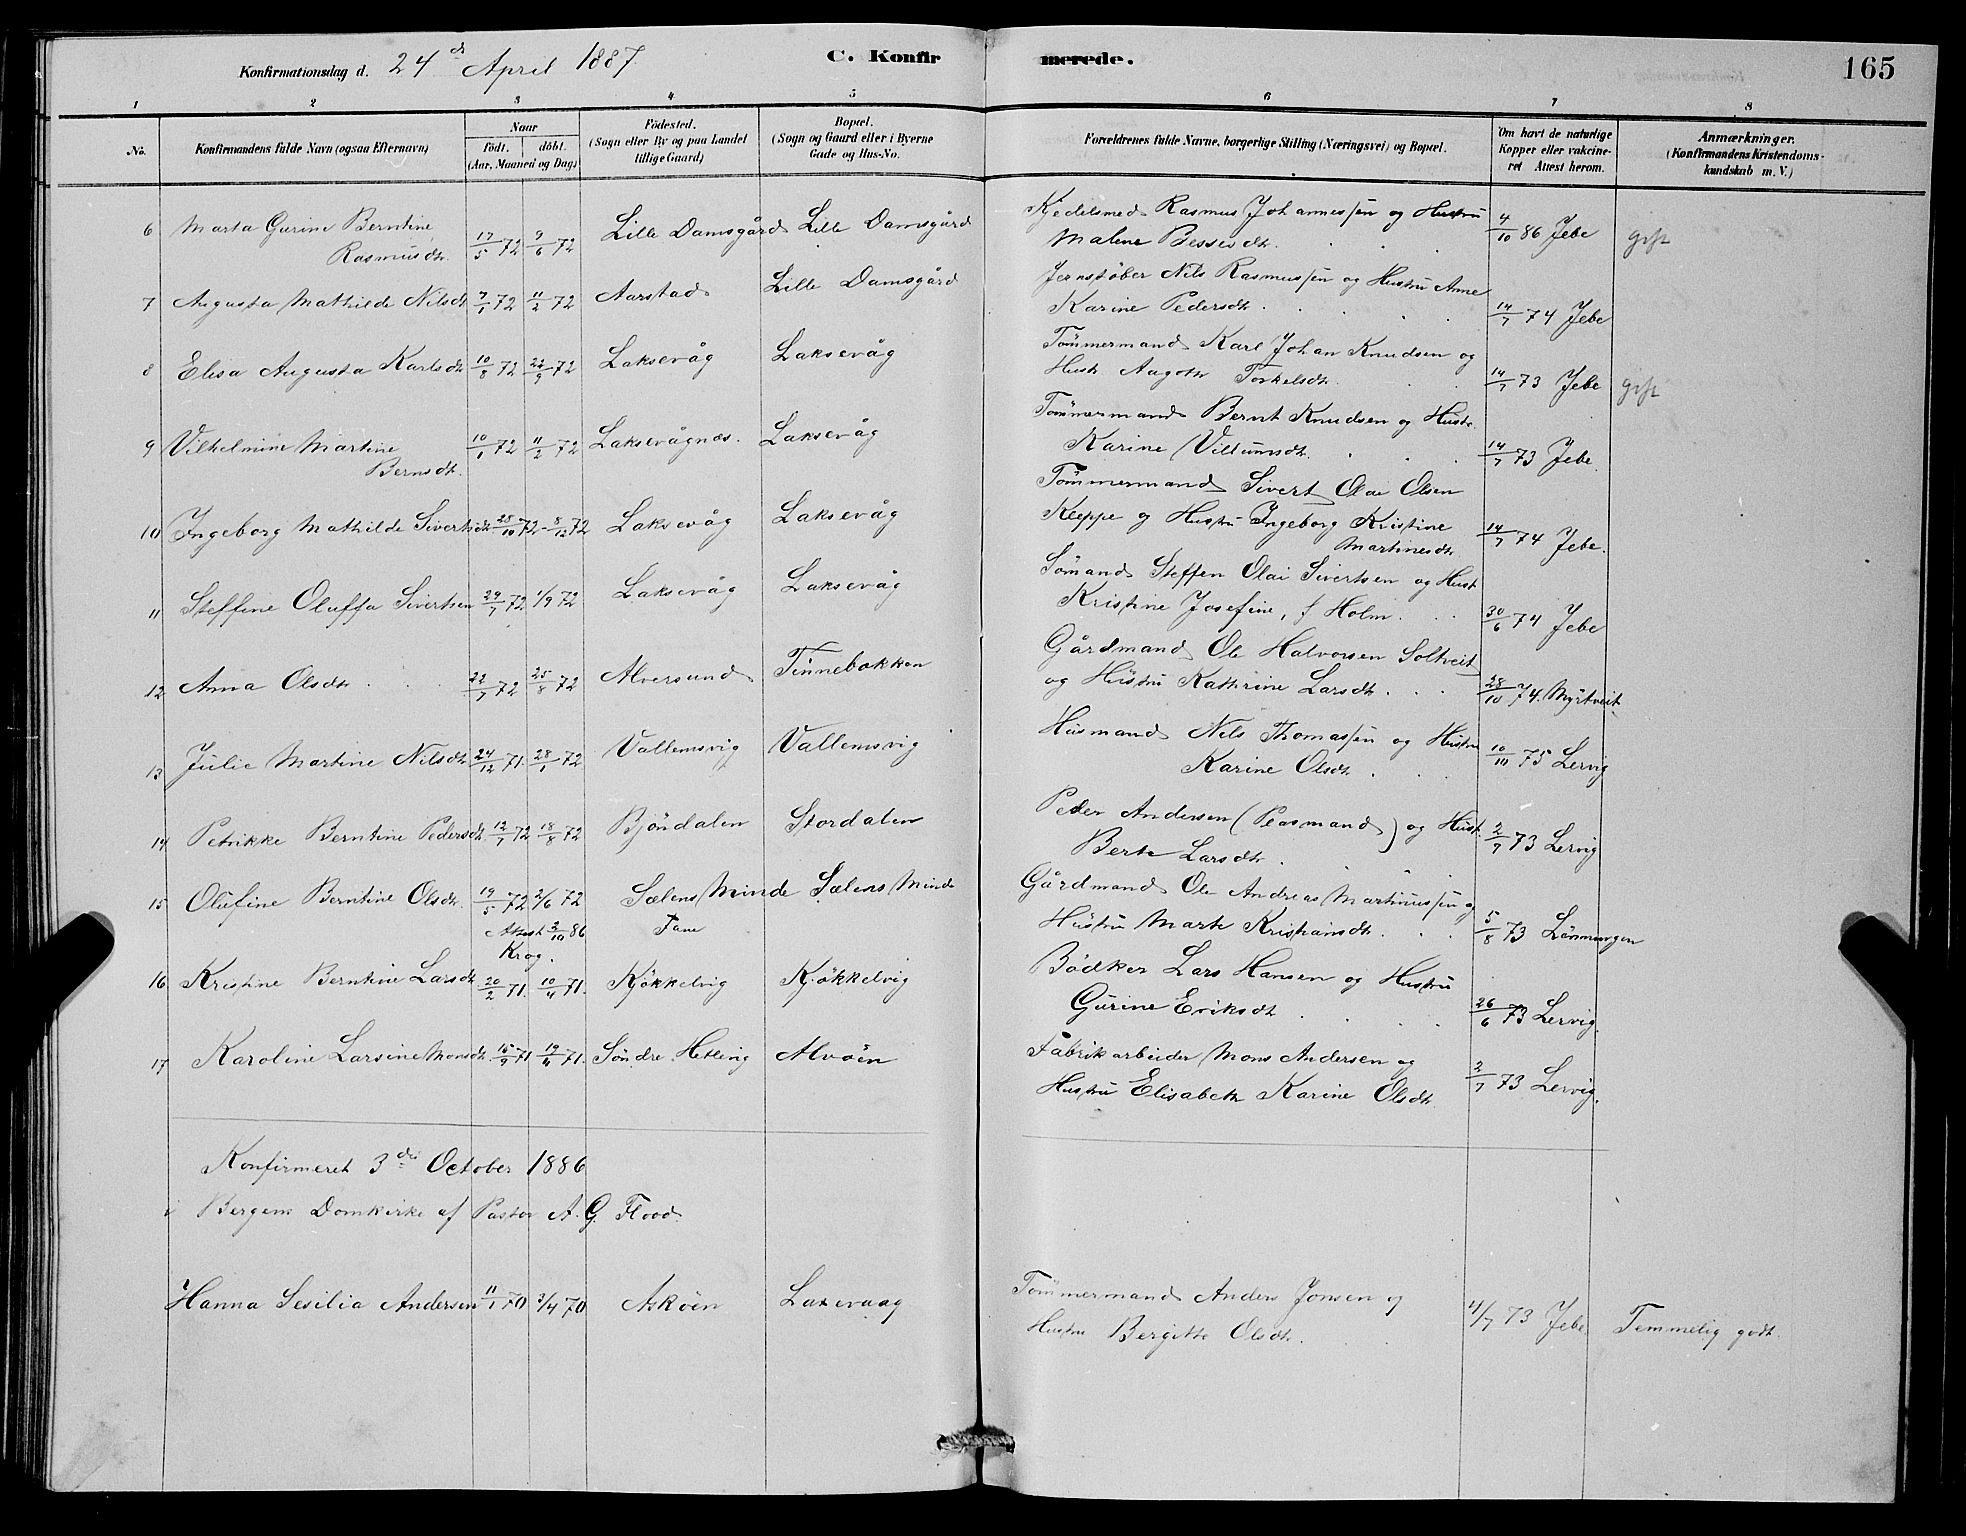 Konfirmationsdag d. 24de April 1887 C. Konfirmerede. 165
1 2 3 4 5 6 7 8
No. Konfirmandens fulde Navn (ogsaa Efternavn) Naar födt. döbt. (Aar, Maaned og Dag) Födested. (Sogn eller By og paa Landet tillige Gaard) Bopæl. (Sogn og Gaard eller i Byerne Gade og Hus-No. Forældrenes fulde Navne, borgerlige Stilling (Næringsvei) og Bopæl. Om havt de naturlige Kopper eller vakcineret Attest herom. Anmærkninger. (Konfirmandens Kristendomskundskab m. V.)
6 Marta Gurine Berntine 17/5 72 9/6 72 Lille Damsgård Lille Damsgård Kjedelsmed Rasmus Johannessen og Hustru 4/10 86 Jebe gift
Rasmusdtr. Malene Bessesdtr.
7 Augusta Mathilde Nilsdtr 7/1 72 11/2 72 Aarstad Lille Damsgård Jernstøber Nils Rasmussen og Hustru Anne
Karine Pedersdtr. 14/7 74 Jebe
8 Elisa Augusta Karlsdtr 10/8 72 22/9 72 Laksevåg Laksevåg Tömmermand Karl Johan Knudsen og
Hustr Aagothe Torkelsdtr. 14/7 73 Jebe gift
9 Vilhelmine Martine 10/1 72 11/2 72 Laksevågnæs. Laksevåg Tömmermand Bernt Knudsen og Hustr.
Bernsdtr. Karine Villumsdtr. 14/7 73 Jebe.
Tömmermand Sivert Olai Olsen
10 Ingeborg Mathilde Sivertsdtr. 28/10 72 8/12 72 Laksevåg Laksevåg Kleppe og Hustru Ingeborg Kristine 14/7 74 Jebe.
Martinesdtr.
11 Steffine Oluffa Sivertsen 29/7 72 1/9 72 Laksevåg Laksevåg Sömand Steffen Olai Sivertsen og Hust
Kristine Josefine, f Holm. 30/6 74 Jebe
12 Anna Olsdtr 22/7 72 25/8 72 Alversund Tinnebakken Gårdmand Ole Halvorsen Soltveit
og Hustru Kathrine Larsdtr. 28/10 74. Myrtveit
13 Julie Martine Nilsdtr 24/12 71. 28/1 72 Vallemsvig Vallemsvig Husmand Nils Thomassen og Hustru
Karine Olsdtr. 10/10 75 Lervig
14 Petrikke Berntine Pedersdtr 12/7 72 18/8 72 Bjöndalen Stordalen Peder Andersen (Pladsmand) og Hust.
Berte Larsdtr. 2/7 73 Lervig
15 Olufine Berntine Olsdtr. 19/5 72 2/6 72 Sælens Minde Sælens Minde Gårdmand Ole Andreas Martinussen og
Attest 3/10 86 Fane Hustru Marte Kristiansdtr. 5/8 73 Lönningen
Krog.
16 Kristine Berntine Larsdtr 20/2 71. 10/4 71. Kjökkelvig Kjökkelvig Bödker Lars Hansen og Hustru
Gurine Eriksdtr. 26/6 73 Lervig.
17 Karoline Larsine Monsdtr. 15/9 71 19/11 71. Söndre Hetlevig Alvöen Fabrikarbeider Mons Andersen og
Hustru Elisabeth Karine Olsdtr. 2/7 73 Lervig.
Konfirmeret 3die October 1886
i Bergens Domkirke af Pastor A. G. Flood.
Hanna Sesilia Andersen 11/1 70 3/4 70 Asköen Laxevaag Tömmermand Anders Jonsen og 4/7 73 Jebe Temmelig godt.
Hustru Bergitte Olsdtr.